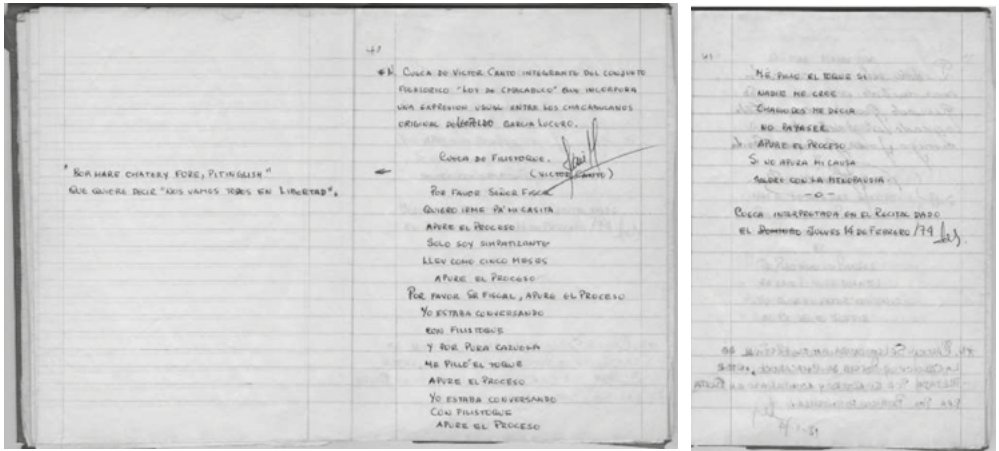 "BOR HARE CHATERY FORE, PITINGLISH"
QUE QUIERE DECIR "NOS VAMOS TODOS EN LIBERTAD".
41
N. CUECA DE VICTOR CANTO INTEGRANTE DEL CONJUNTO
FOLKLORICO "LOS DE CHACABUCO" QUE INCORPORA
UNA EXPRESION USUAL ENTRE LOS CHACABUCANOS
ORIGINAL DE LEOPOLDO GARCIA LUCERO.
CUECA DE FILISTOQUE.
(VICTOR CANTO)
POR FAVOR SEÑOR FISCAL
QUIERO IRME PA' MI CASITA
APURE EL PROCESO
SOLO SOY SIMPATIZANTE
LLEV COMO CINCO MESES
APURE EL PROCESO
POR FAVOR SR FISCAL, APURE EL PROCESO
YO ESTABA CONVERSANDO
CON FILISTOQUE
Y POR PURA CAZUELA
ME PILLÓ EL TOQUE
APURE EL PROCESO
YO ESTABA CONVERSANDO
CON FILISTOQUE
APURE EL PROCESO
ME PILLO EL TOQUE SI
NADIE ME CREE
CHAGO DOS ME DECIA
NO
APURE EL PROCESO
SI NO APURA MI CAUSA
CON LA MENOPAUSIA
-0-
CUECA INTERPRETADA EN EL RECITAL DADO
EL DOMINGO JUEVES 14 DE FEBRERO /74